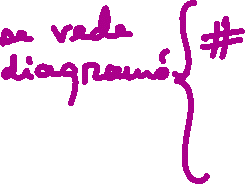 se vede #
diagramă